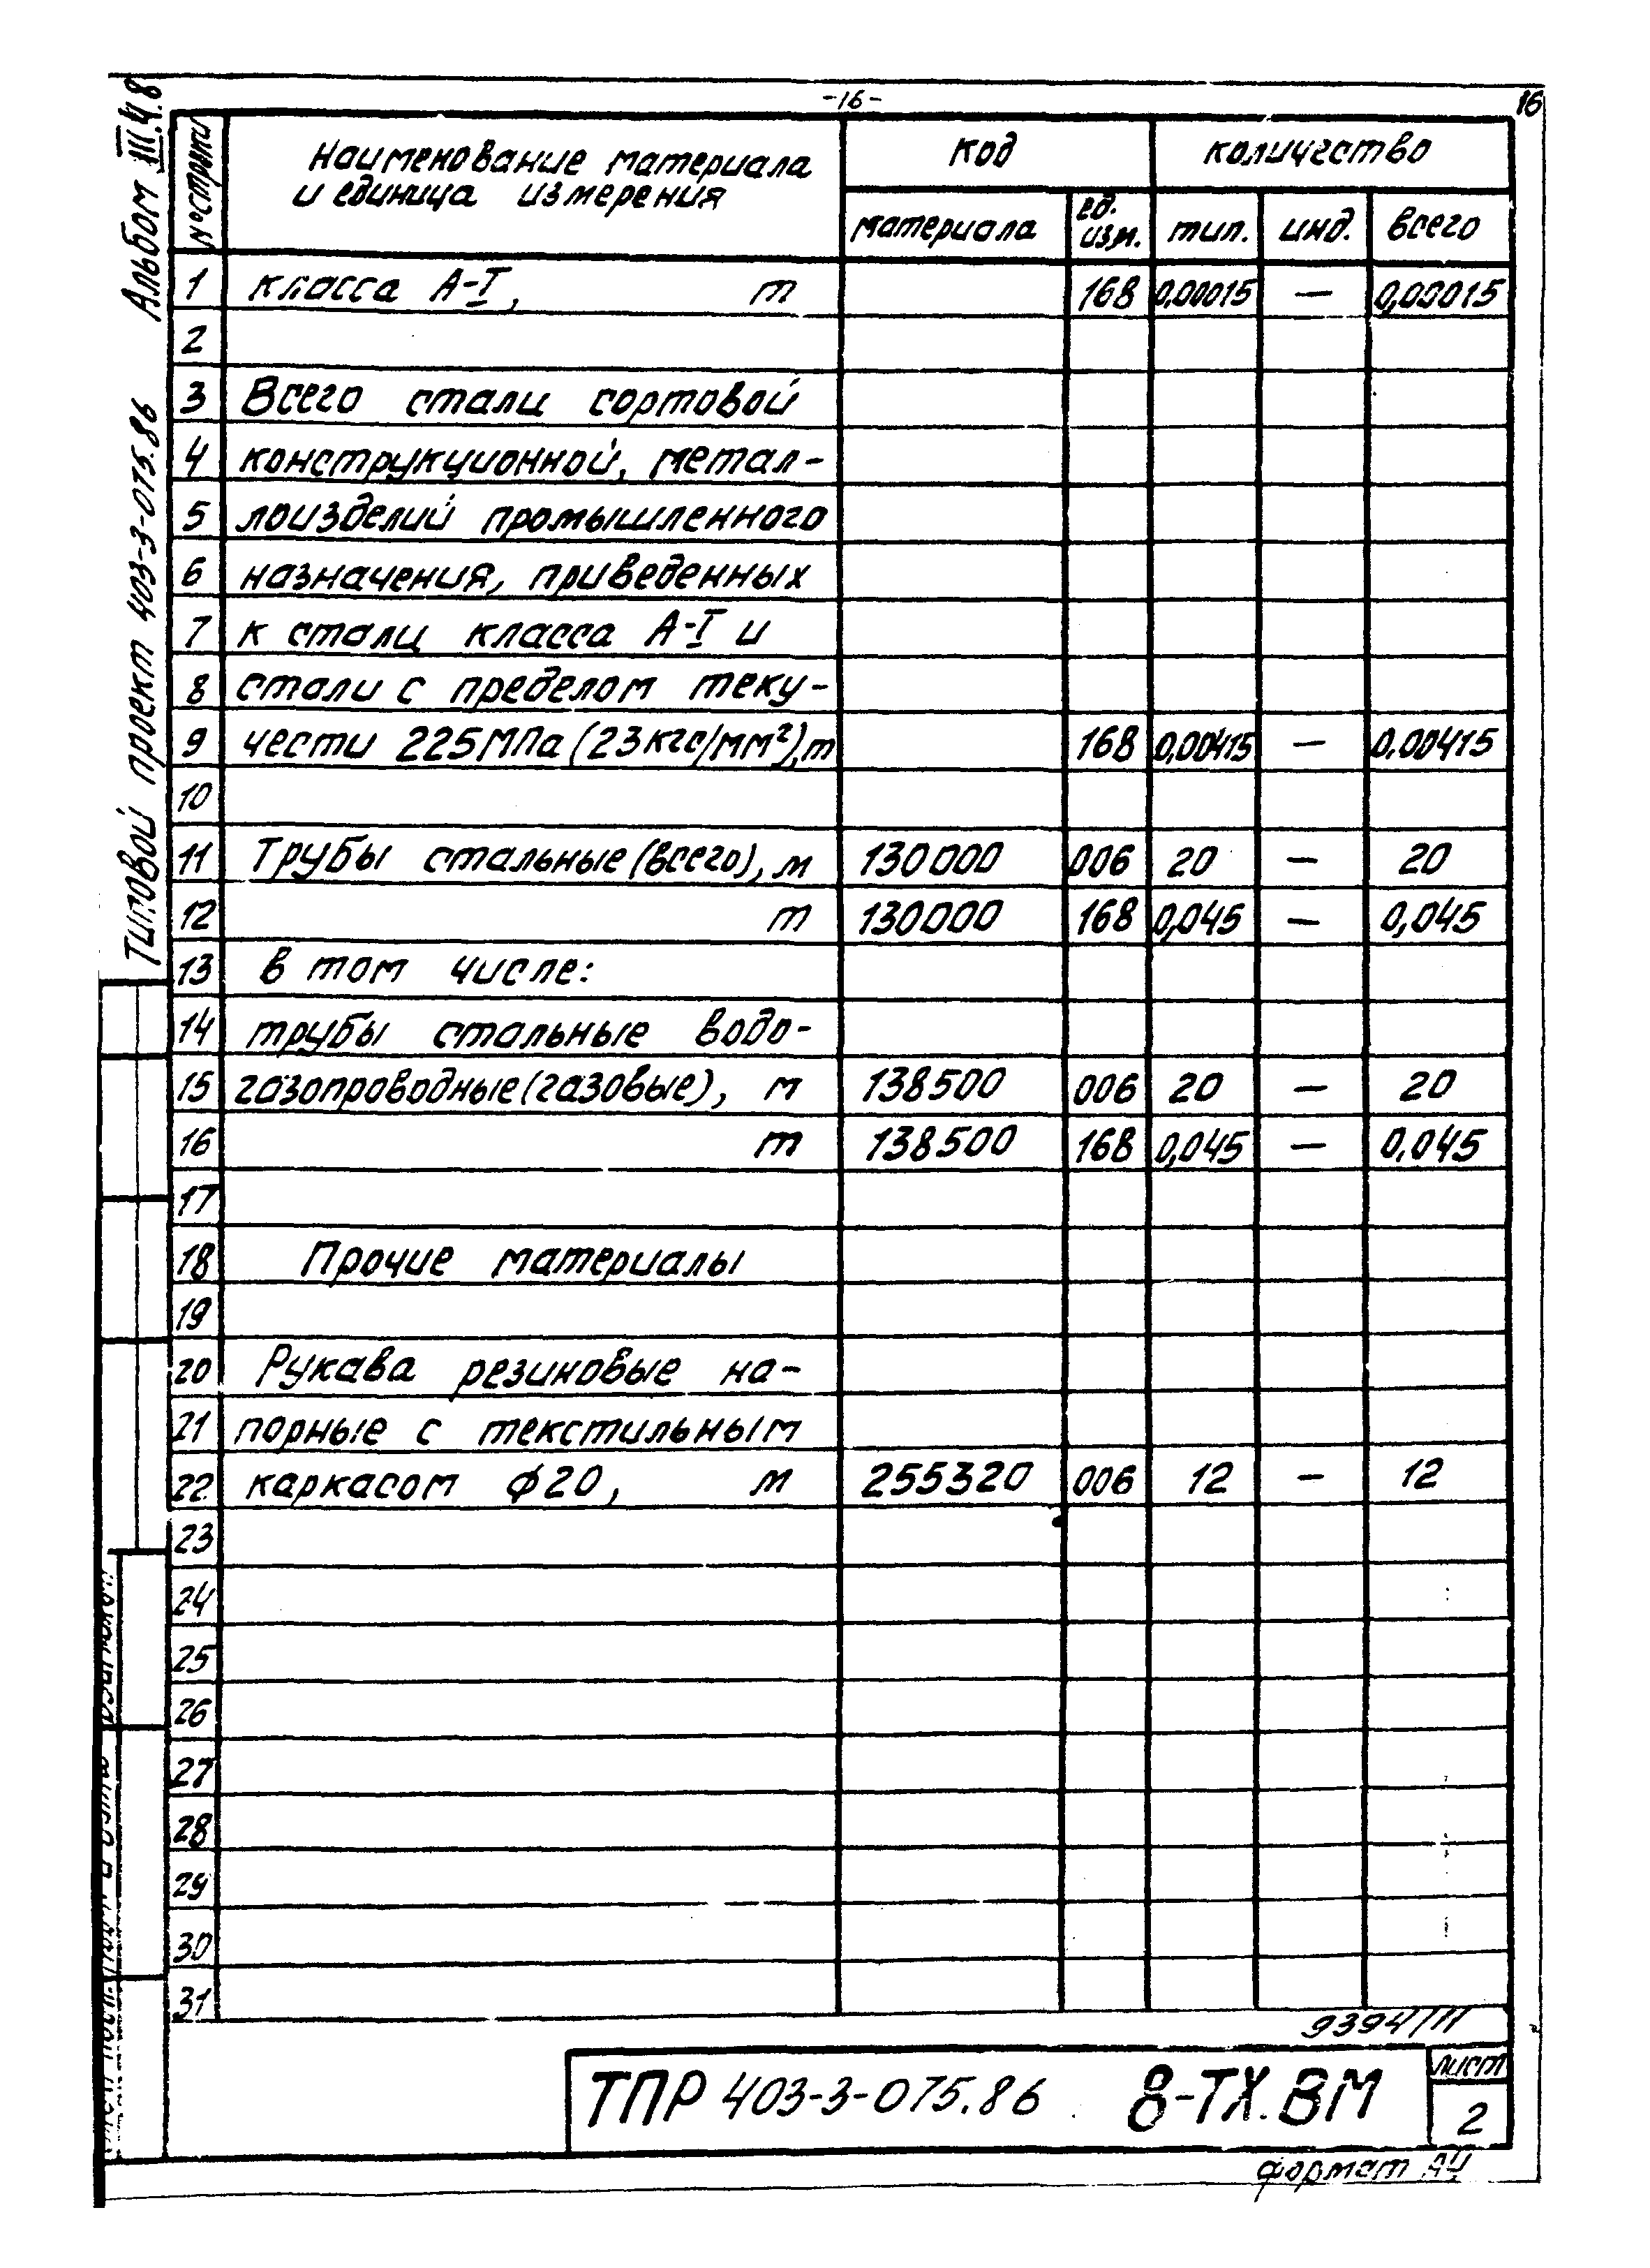 -16-
16
Альбом III.4.8
Типовой проект 403-3-075.86
№ строки
Наименование материала
и единица измерения
Код
количество
материала
ед.
изм.
тип.
инд.
всего
1 класса А-I, т 168 0,00015 — 0,00015
2
3 Всего стали сортовой
4 конструкционной, метал-
5 лоизделий промышленного
6 назначения, приведенных
7 к стали класса А-I и
8 стали с пределом теку-
9 чести 225 МПа (23 кгс/мм²), т 168 0,00415 — 0,00415
10
11 Трубы стальные (всего), м 130000 006 20 — 20
12 т 130000 168 0,045 — 0,045
13 в том числе:
14 трубы стальные водо-
15 газопроводные (газовые), м 138500 006 20 — 20
16 т 138500 168 0,045 — 0,045
17
18 Прочие материалы
19
20 Рукава резиновые на-
21 порные с текстильным
22 каркасом ф20, м 255320 006 12 — 12
23
24
25
26
27
28
29
30
31
9394/11
ТПР 403-3-075.86 8-ТХ.ВМ
лист
2
формат А4